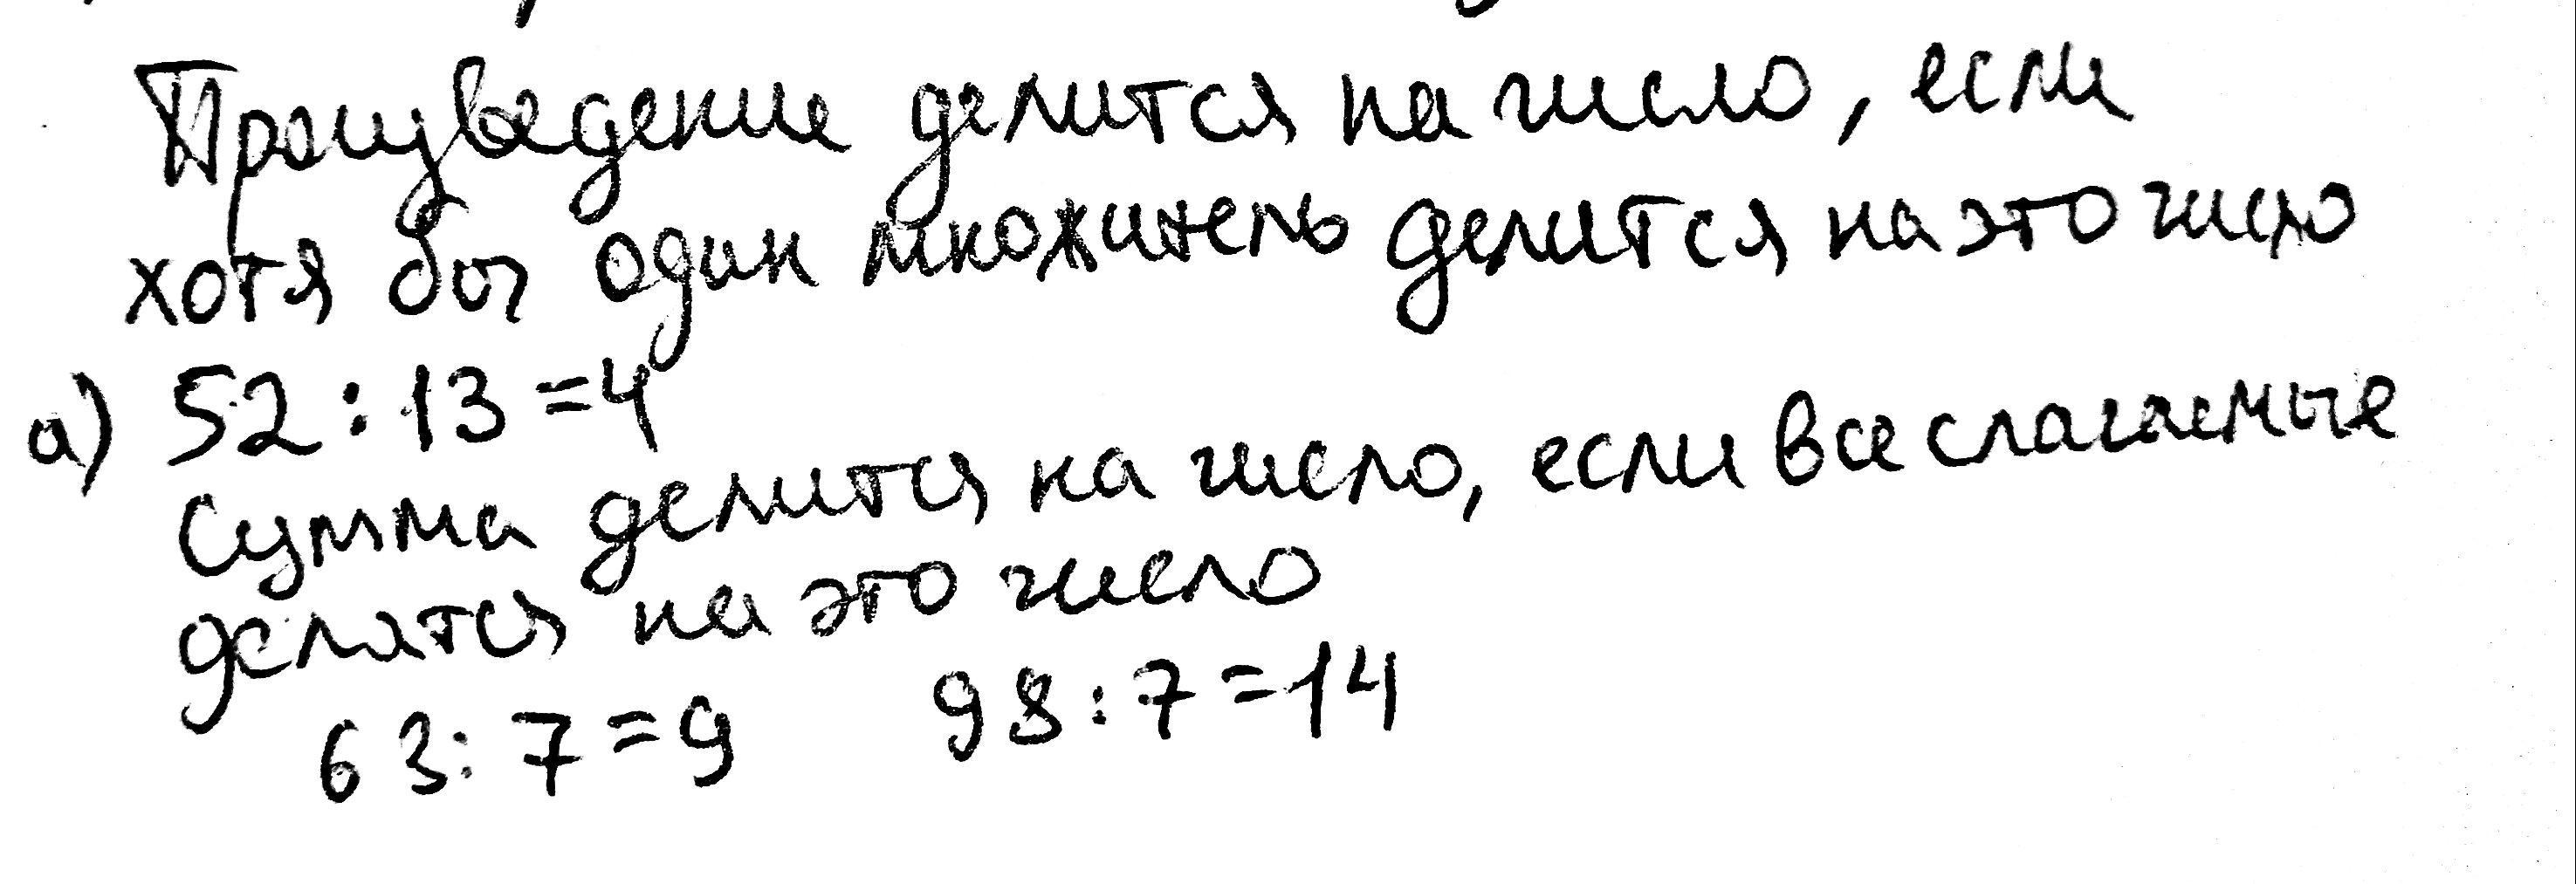 Произведение делится на число, если
хотя бы один множитель делится на это число
а) 52 : 13 = 4
Сумма делится на число, если все слагаемые
делятся на это число
63 : 7 = 9 98 : 7 = 14